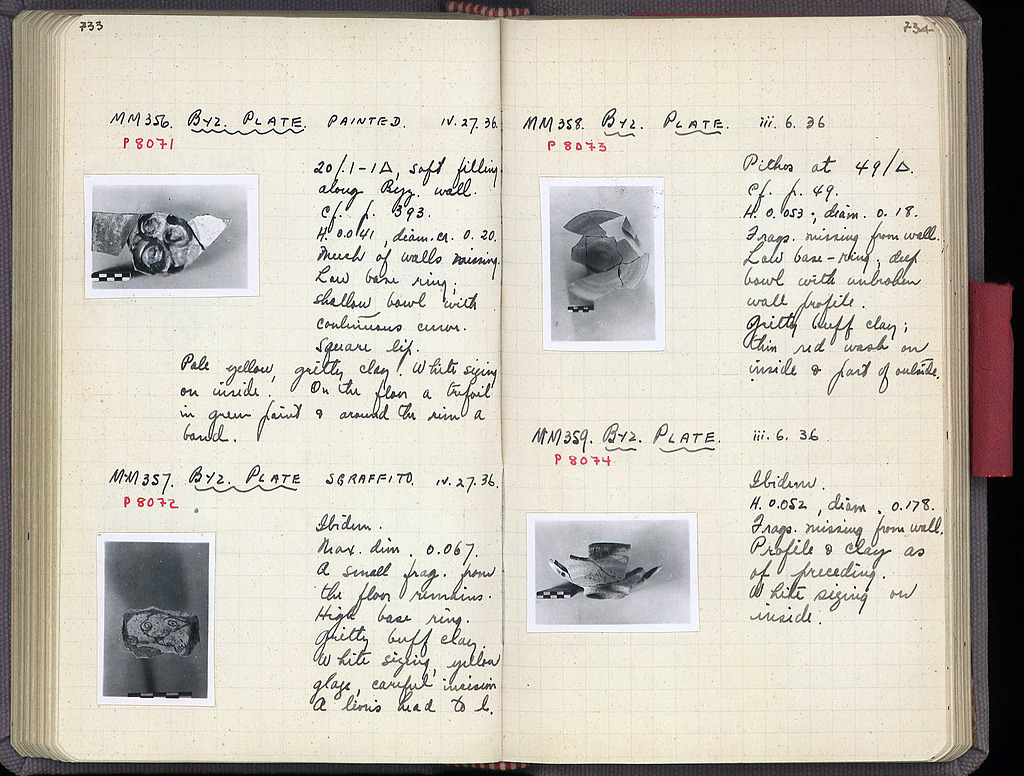 733
MM356. BYZ. PLATE. PAINTED. IV.27.36.
P 8071
20/.1-1Δ, soft filling
along Byz. wall.
Cf. p. 393.
H. 0.041, diam. cr. 0.20.
Much of walls missing.
Low base ring;
shallow bowl with
continuous curve.
Square lip.
Pale yellow, gritty clay. White sizing
on inside. On the floor a trefoil
in green paint & around the rim a
band.
MM357. BYZ. PLATE SGRAFFITO. IV.27.36.
P 8072
Ibidem.
Max. dim. 0.067.
A small frag. from
the floor remains.
High base ring.
Gritty buff clay.
White sizing, yellow
glaze, careful incision
A lion's head to l.
734
MM358. BYZ. PLATE. iii.6.36
P 8073
Pithos at 49/Δ.
Cf. p. 49.
H. 0.053; diam. 0.18.
Frags. missing from wall.
Low base-ring; deep
bowl with unbroken
wall profile.
Gritty buff clay;
thin red wash on
inside & part of outside.
MM359. BYZ. PLATE. iii.6.36
P 8074
Ibidem.
H. 0.052, diam. 0.178.
Frags. missing from wall.
Profile & clay as
of preceding.
White sizing on
inside.